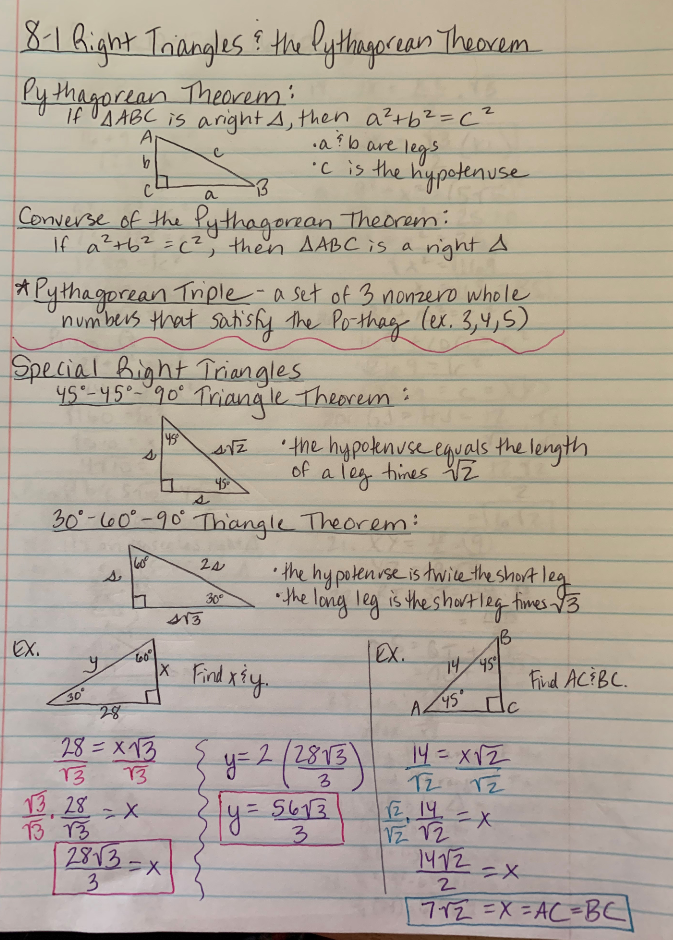 8-1 Right Triangles & the Pythagorean Theorem
Pythagorean Theorem:
If △ABC is a right △, then a²+b²=c²
A
b
c
C
a
B
•a & b are legs
•c is the hypotenuse
Converse of the Pythagorean Theorem:
If a²+b²=c², then △ABC is a right △
*Pythagorean Triple - a set of 3 nonzero whole
numbers that satisfy the Po-thag (ex. 3,4,5)
Special Right Triangles
45°-45°-90° Triangle Theorem:
45°
s
s√2
45°
s
•the hypotenuse equals the length
of a leg times √2
30°-60°-90° Triangle Theorem:
60°
s
2s
30°
s√3
•the hypotenuse is twice the short leg
•the long leg is the short leg times √3
EX.
y
60°
x
30°
28
Find x & y.
28 = x√3
√3 √3
√3/√3 · 28/√3 = x
28√3/3 = x
y = 2 (28√3/3)
y = 56√3/3
EX.
B
14
45°
A
45°
C
Find AC & BC.
14 = x√2
√2 √2
√2/√2 · 14/√2 = x
14√2/2 = x
7√2 = x = AC = BC